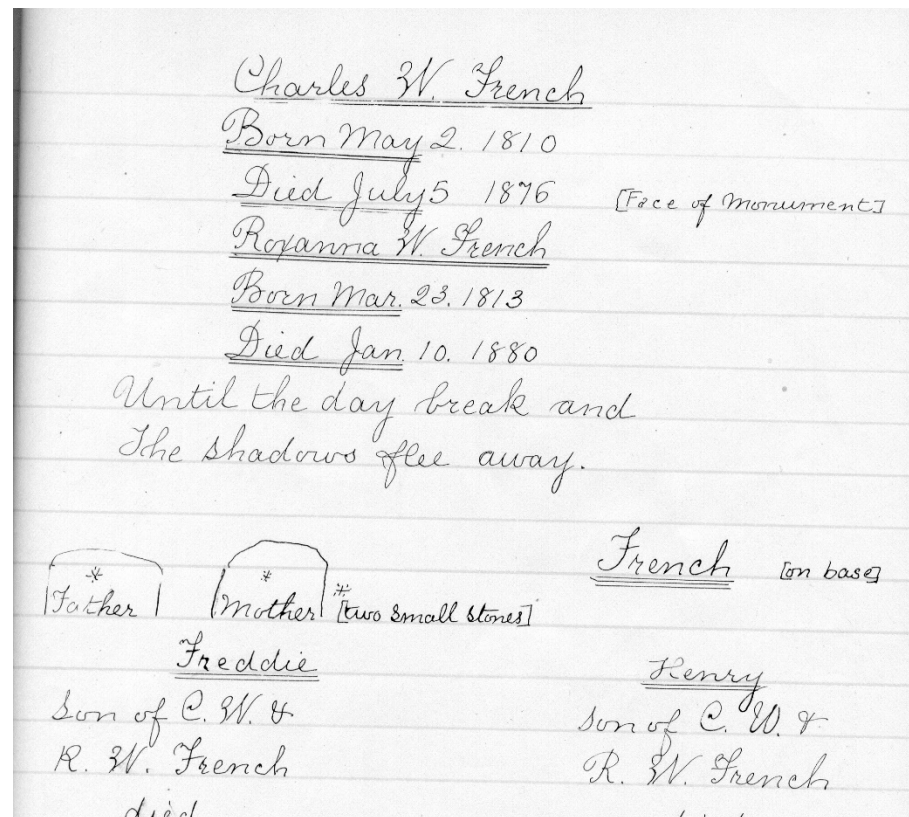 Charles W. French
Born May 2. 1810
Died July 5 1876 [Face of Monument]
Roxanna W. French
Born Mar. 23. 1813
Died Jan. 10. 1880
Until the day break and
The shadows flee away.
French [on base]
* Father
* Mother * [two small stones]
Freddie
Son of C. W. &
R. W. French
died
Henry
Son of C. W. &
R. W. French